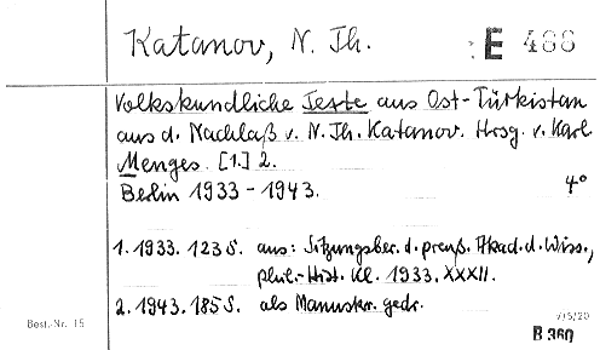 Katanov, N. Th. : E 466
Volkskundliche Texte aus Ost-Türkistan
aus d. Nachlaß v. N. Th. Katanov. Hrsg. v. Karl
Menges. [1.] 2.
Berlin 1933 - 1943. 4°
1. 1933. 123 S. aus: Sitzungsber. d. preuß. Akad. d. Wiss.,
phil.-Hist. Kl. 1933. XXXII.
2. 1943. 185 S. als Manuskr. gedr.
Best.-Nr. 15
B 360